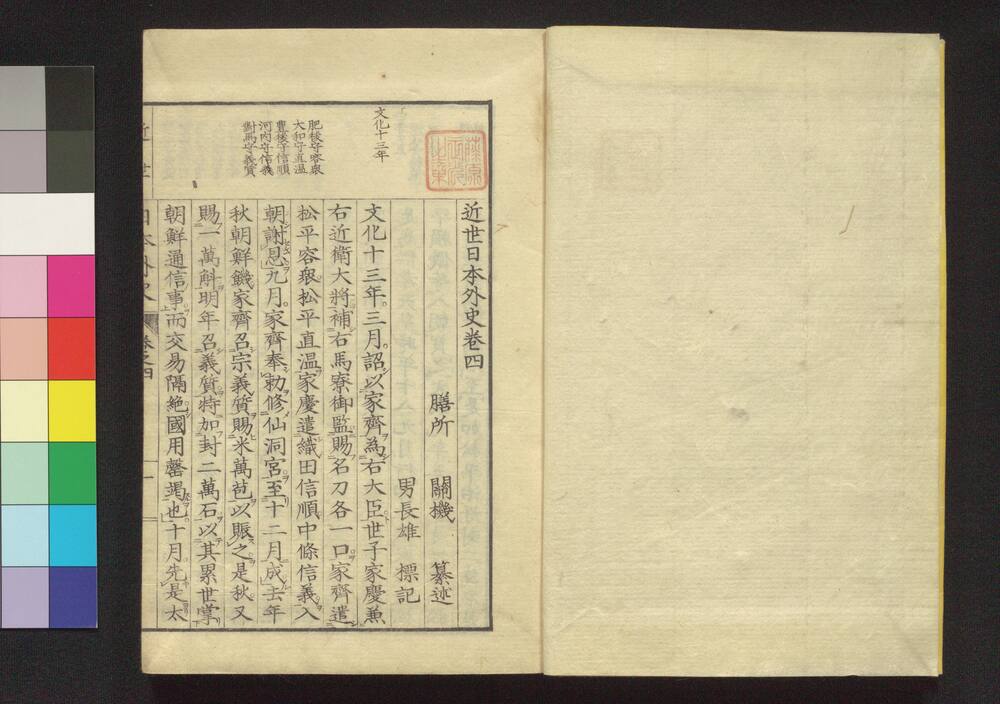 近世日本外史卷四
膳所 關機 纂述
男長雄 標記
文化十三年三月詔以家齊為右大臣世子家慶兼
右近衛大將補右馬寮御監賜名刀各一口家齊遣
松平容衆松平直溫家慶遣織田信順中條信義入
朝謝恩九月家齊奉勅修仙洞宮至十二月成去年
秋朝鮮饑家齊召宗義質賜米萬苞以賑之是秋又
賜一萬斛明年召義質特加封二萬石以其累世掌
朝鮮通信事而交易隔絶國用罄竭也十月先是太
文化十三年
肥後守容衆
大和守直溫
豊後守信順
河内守信義
對馬守義質